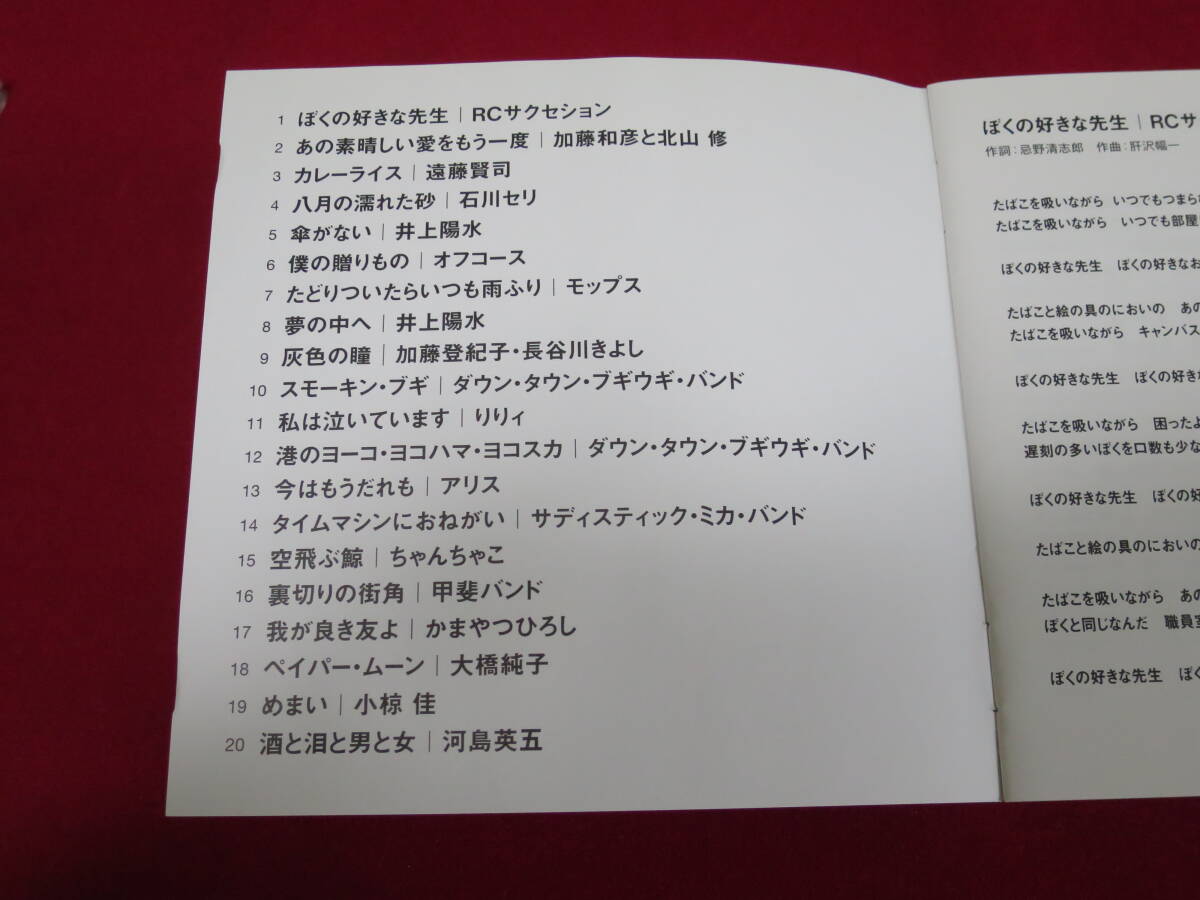 1 ぼくの好きな先生｜RCサクセション
2 あの素晴しい愛をもう一度｜加藤和彦と北山 修
3 カレーライス｜遠藤賢司
4 八月の濡れた砂｜石川セリ
5 傘がない｜井上陽水
6 僕の贈りもの｜オフコース
7 たどりついたらいつも雨ふり｜モップス
8 夢の中へ｜井上陽水
9 灰色の瞳｜加藤登紀子・長谷川きよし
10 スモーキン・ブギ｜ダウン・タウン・ブギウギ・バンド
11 私は泣いています｜りりィ
12 港のヨーコ・ヨコハマ・ヨコスカ｜ダウン・タウン・ブギウギ・バンド
13 今はもうだれも｜アリス
14 タイムマシンにおねがい｜サディスティック・ミカ・バンド
15 空飛ぶ鯨｜ちゃんちゃこ
16 裏切りの街角｜甲斐バンド
17 我が良き友よ｜かまやつひろし
18 ペイパー・ムーン｜大橋純子
19 めまい｜小椋 佳
20 酒と泪と男と女｜河島英五
ぼくの好きな先生｜RCサ
作詞：忌野清志郎 作曲：肝沢幅一
たばこを吸いながら いつでもつまら
たばこを吸いながら いつでも部屋
ぼくの好きな先生 ぼくの好きなお
たばこと絵の具のにおいの あの
たばこを吸いながら キャンバス
ぼくの好きな先生 ぼくの好き
たばこを吸いながら 困ったよ
遅刻の多いぼくを口数も少な
ぼくの好きな先生 ぼくの好
たばこと絵の具のにおいの
たばこを吸いながら あの
ぼくと同じなんだ 職員室
ぼくの好きな先生 ぼく